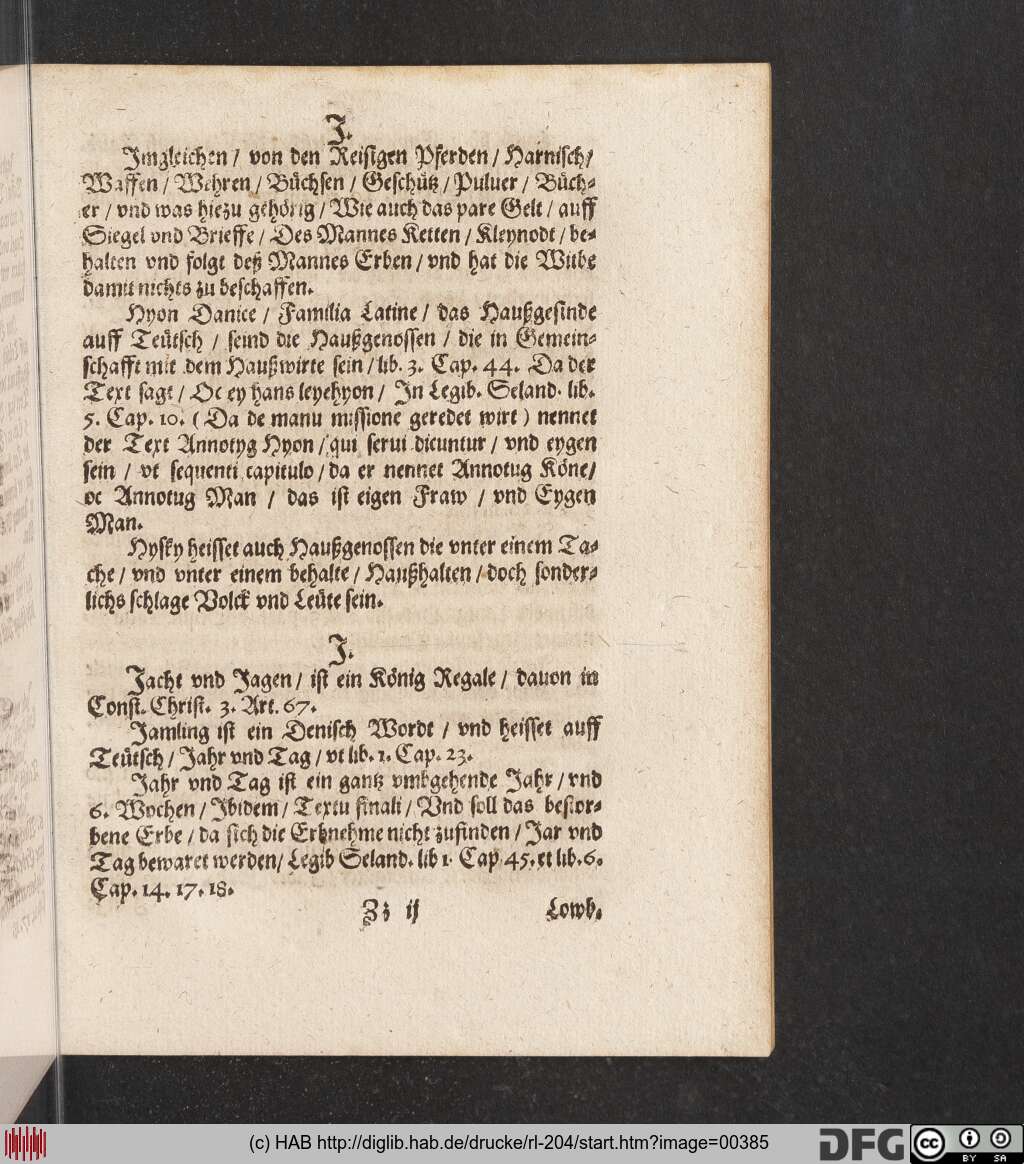 J.
Jmgleichen / von den Reisigen Pferden / Harnisch /
Waffen / Wehren / Büchsen / Geschütz / Puluer / Büch-
er / vnd was hiezu gehörig / Wie auch das pare Gelt / auff
Siegel vnd Brieffe / Des Mannes Ketten / Kleynodt / be-
halten vnd folgt deß Mannes Erben / vnd hat die Witbe
damit nichts zu beschaffen.
Hyon Danice / Familia Latine / das Haußgesinde
auff Teütsch / seind die Haußgenossen / die in Gemein-
schafft mit dem Haußwirte sein / lib. 3. Cap. 44. Da der
Text sagt / Oc ey hans leyehyon / Jn Legib. Seland. lib.
5. Cap. 10. ( Da de manu missione geredet wirt ) nennet
der Text Annotyg Hyon / qui serui dicuntur / vnd eygen
sein / vt sequenti capitulo / da er nennet Annotug Köne /
oc Annotug Man / das ist eigen Fraw / vnd Eygen
Man.
Hysky heisset auch Haußgenossen die vnter einem Ta-
che / vnd vnter einem behalte / Haußhalten / doch sonder-
lichs schlage Volck vnd Leüte sein.
J.
Jacht vnd Jagen / ist ein König Regale / dauon in
Const. Christ. 3. Art. 67.
Jamling ist ein Denisch Wordt / vnd heisset auff
Teütsch / Jahr vnd Tag / vt lib. 1. Cap. 23.
Jahr vnd Tag ist ein gantz vmbgehende Jahr / vnd
6. Wochen / Jbidem / Textu finali / Vnd soll das bestor-
bene Erbe / da sich die Erbnehme nicht zufinden / Jar vnd
Tag bewaret werden / Legib Seland. lib 1. Cap 45. et lib. 6.
Cap. 14. 17. 18.
Zz ij Lowb.
(c) HAB http://diglib.hab.de/drucke/rl-204/start.htm?image=00385
DFG cc BY SA